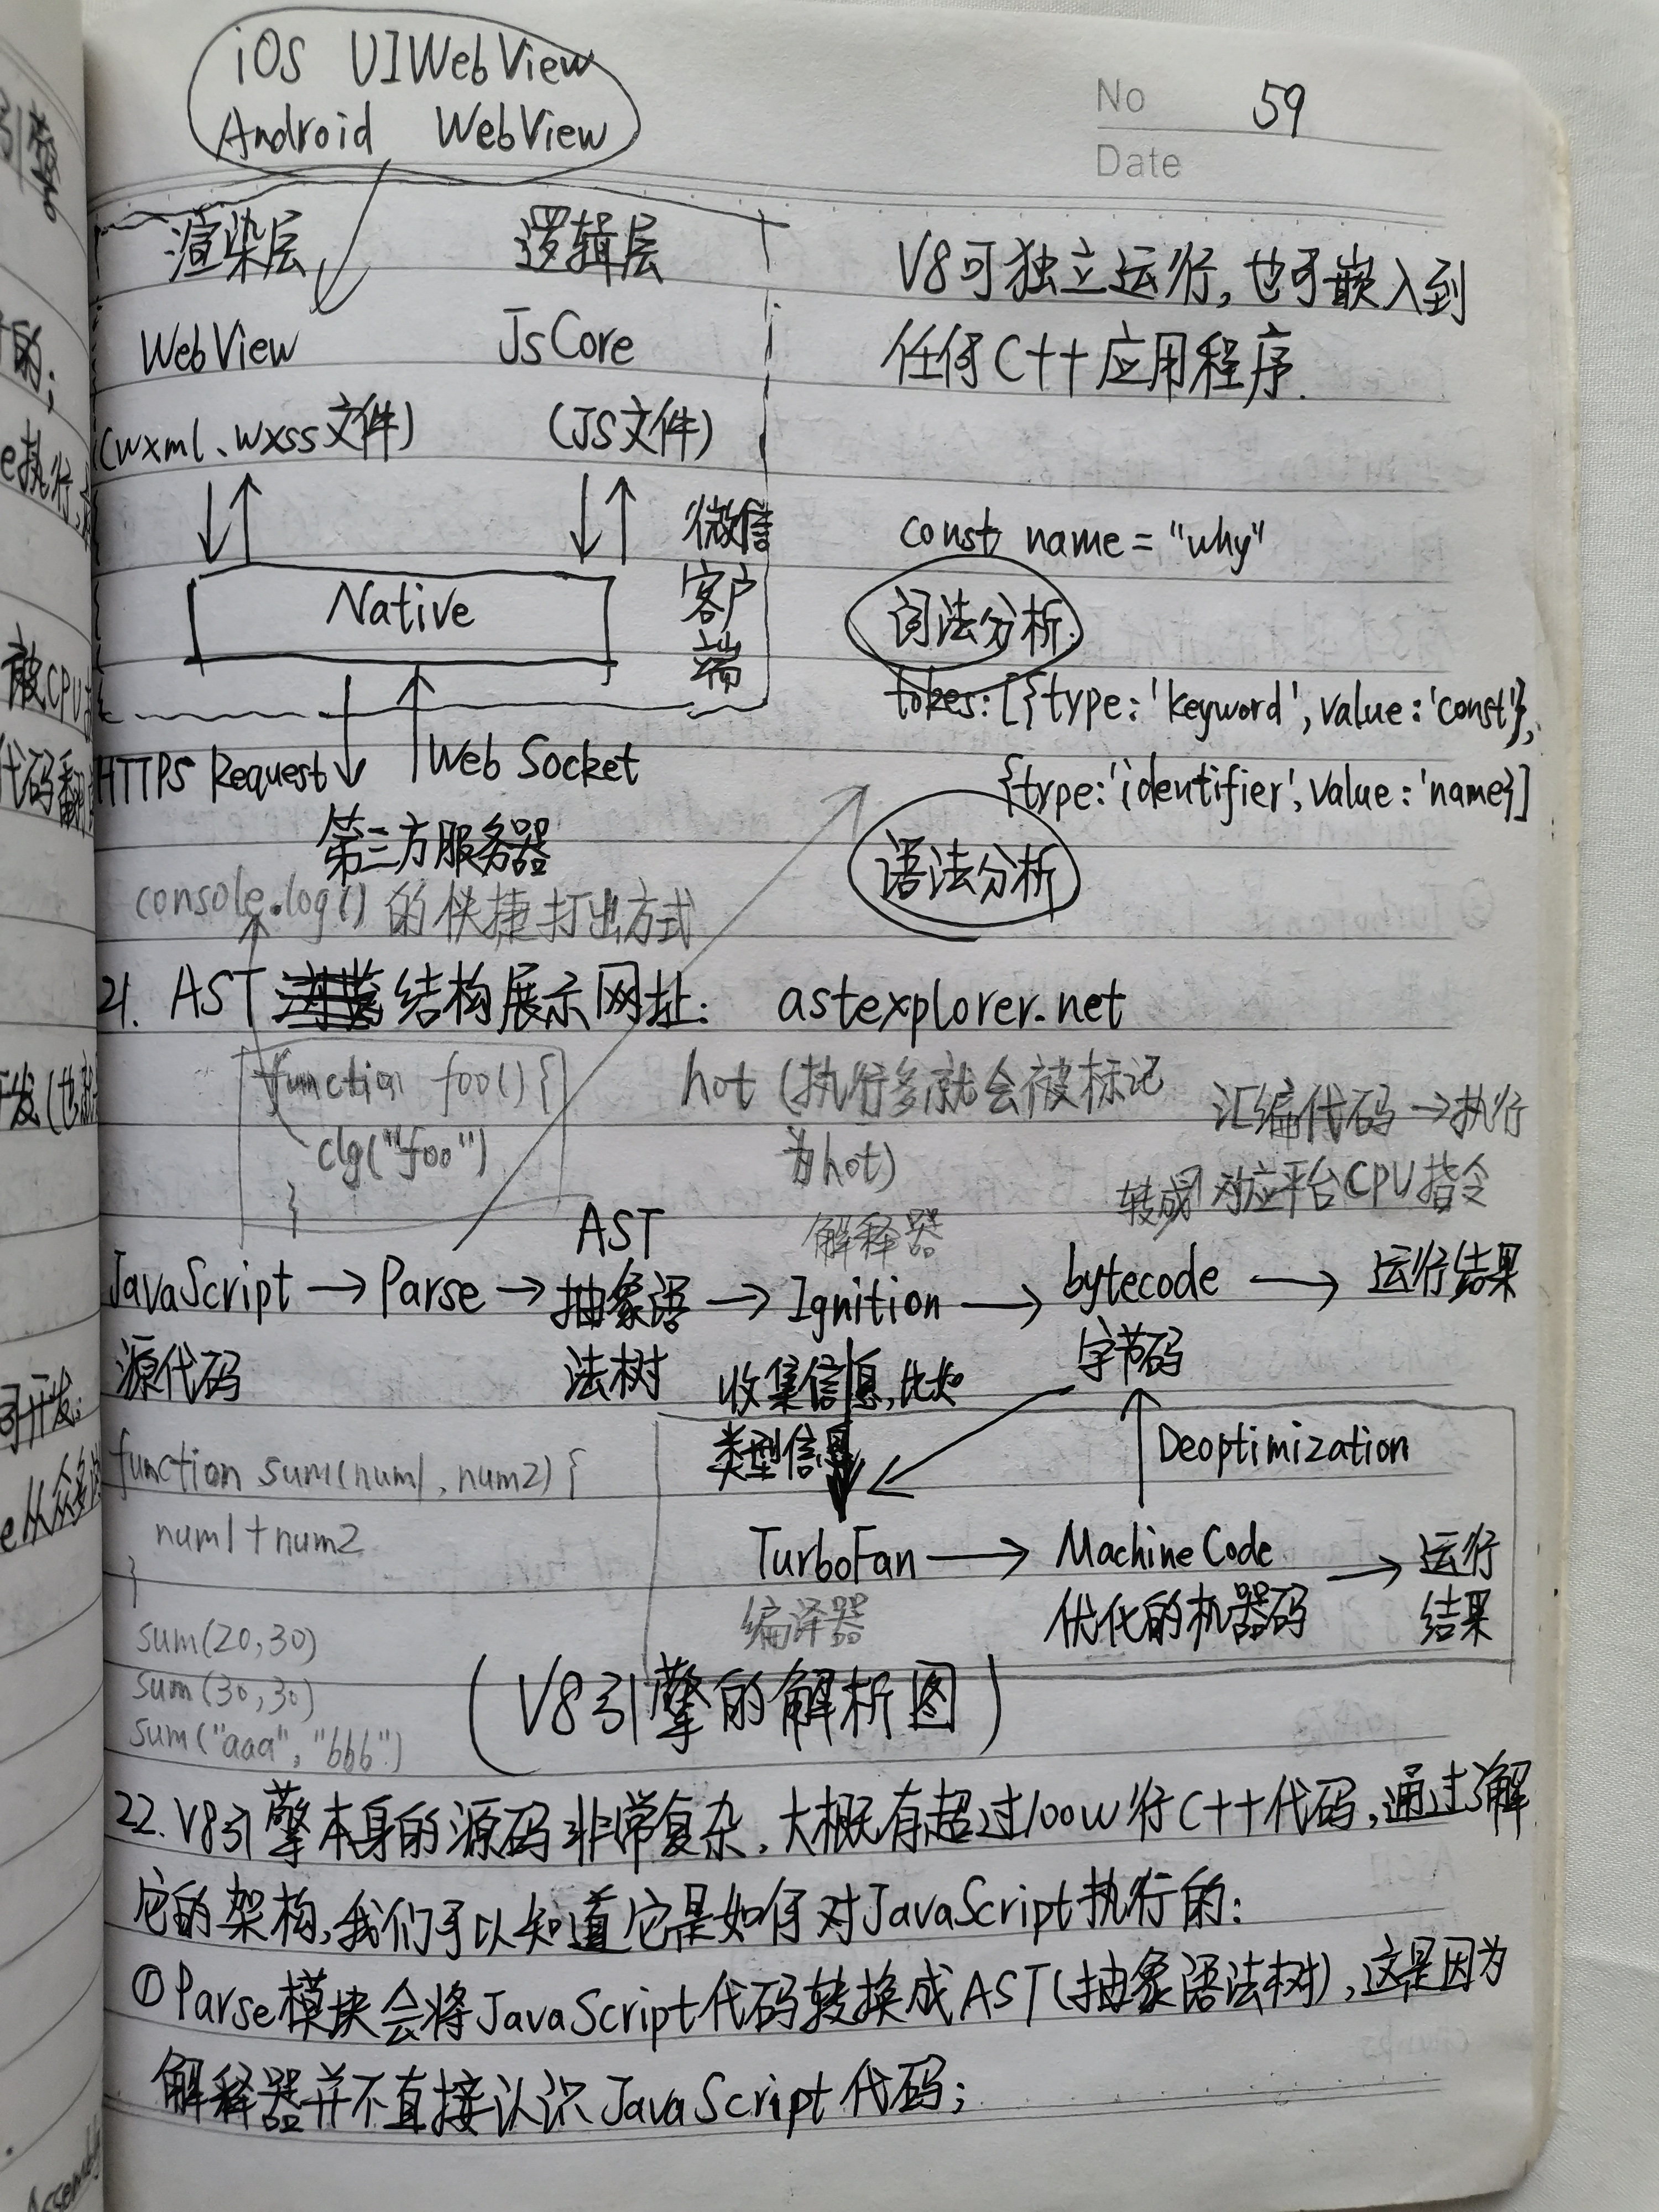 iOS UIWebView
Android WebView
No 59
Date
渲染层 逻辑层
WebView JsCore
(wxml、wxss文件) (JS文件)
微信
客户
端
Native
HTTPS Request Web Socket
第三方服务器
V8可独立运行,也可嵌入到
任何C++应用程序.
const name = "why"
词法分析.
tokes: [{type: 'keyword', value: 'const'},
{type: 'identifier', value: 'name}]
语法分析
console.log() 的快捷打出方式
21. AST 结构展示网址: astexplorer.net
function foo() {
clg("foo")
}
hot (执行多就会被标记
为hot)
汇编代码 → 执行
转成对应平台CPU指令
解释器
JavaScript → Parse → AST → Ignition → bytecode → 运行结果
源代码
抽象语
法树
字节码
收集信息,比如
类型信息
Deoptimization
TurboFan → MachineCode → 运行
结果
编译器
优化的机器码
function sum(num1, num2) {
num1 + num2
}
sum(20,30)
sum(30,30)
sum("aaa", "bbb")
(V8引擎的解析图)
22. V8引擎本身的源码非常复杂,大概有超过100w行C++代码,通过了解
它的架构,我们可以知道它是如何对JavaScript执行的:
①Parse模块会将JavaScript代码转换成AST(抽象语法树),这是因为
解释器并不直接认识JavaScript代码;